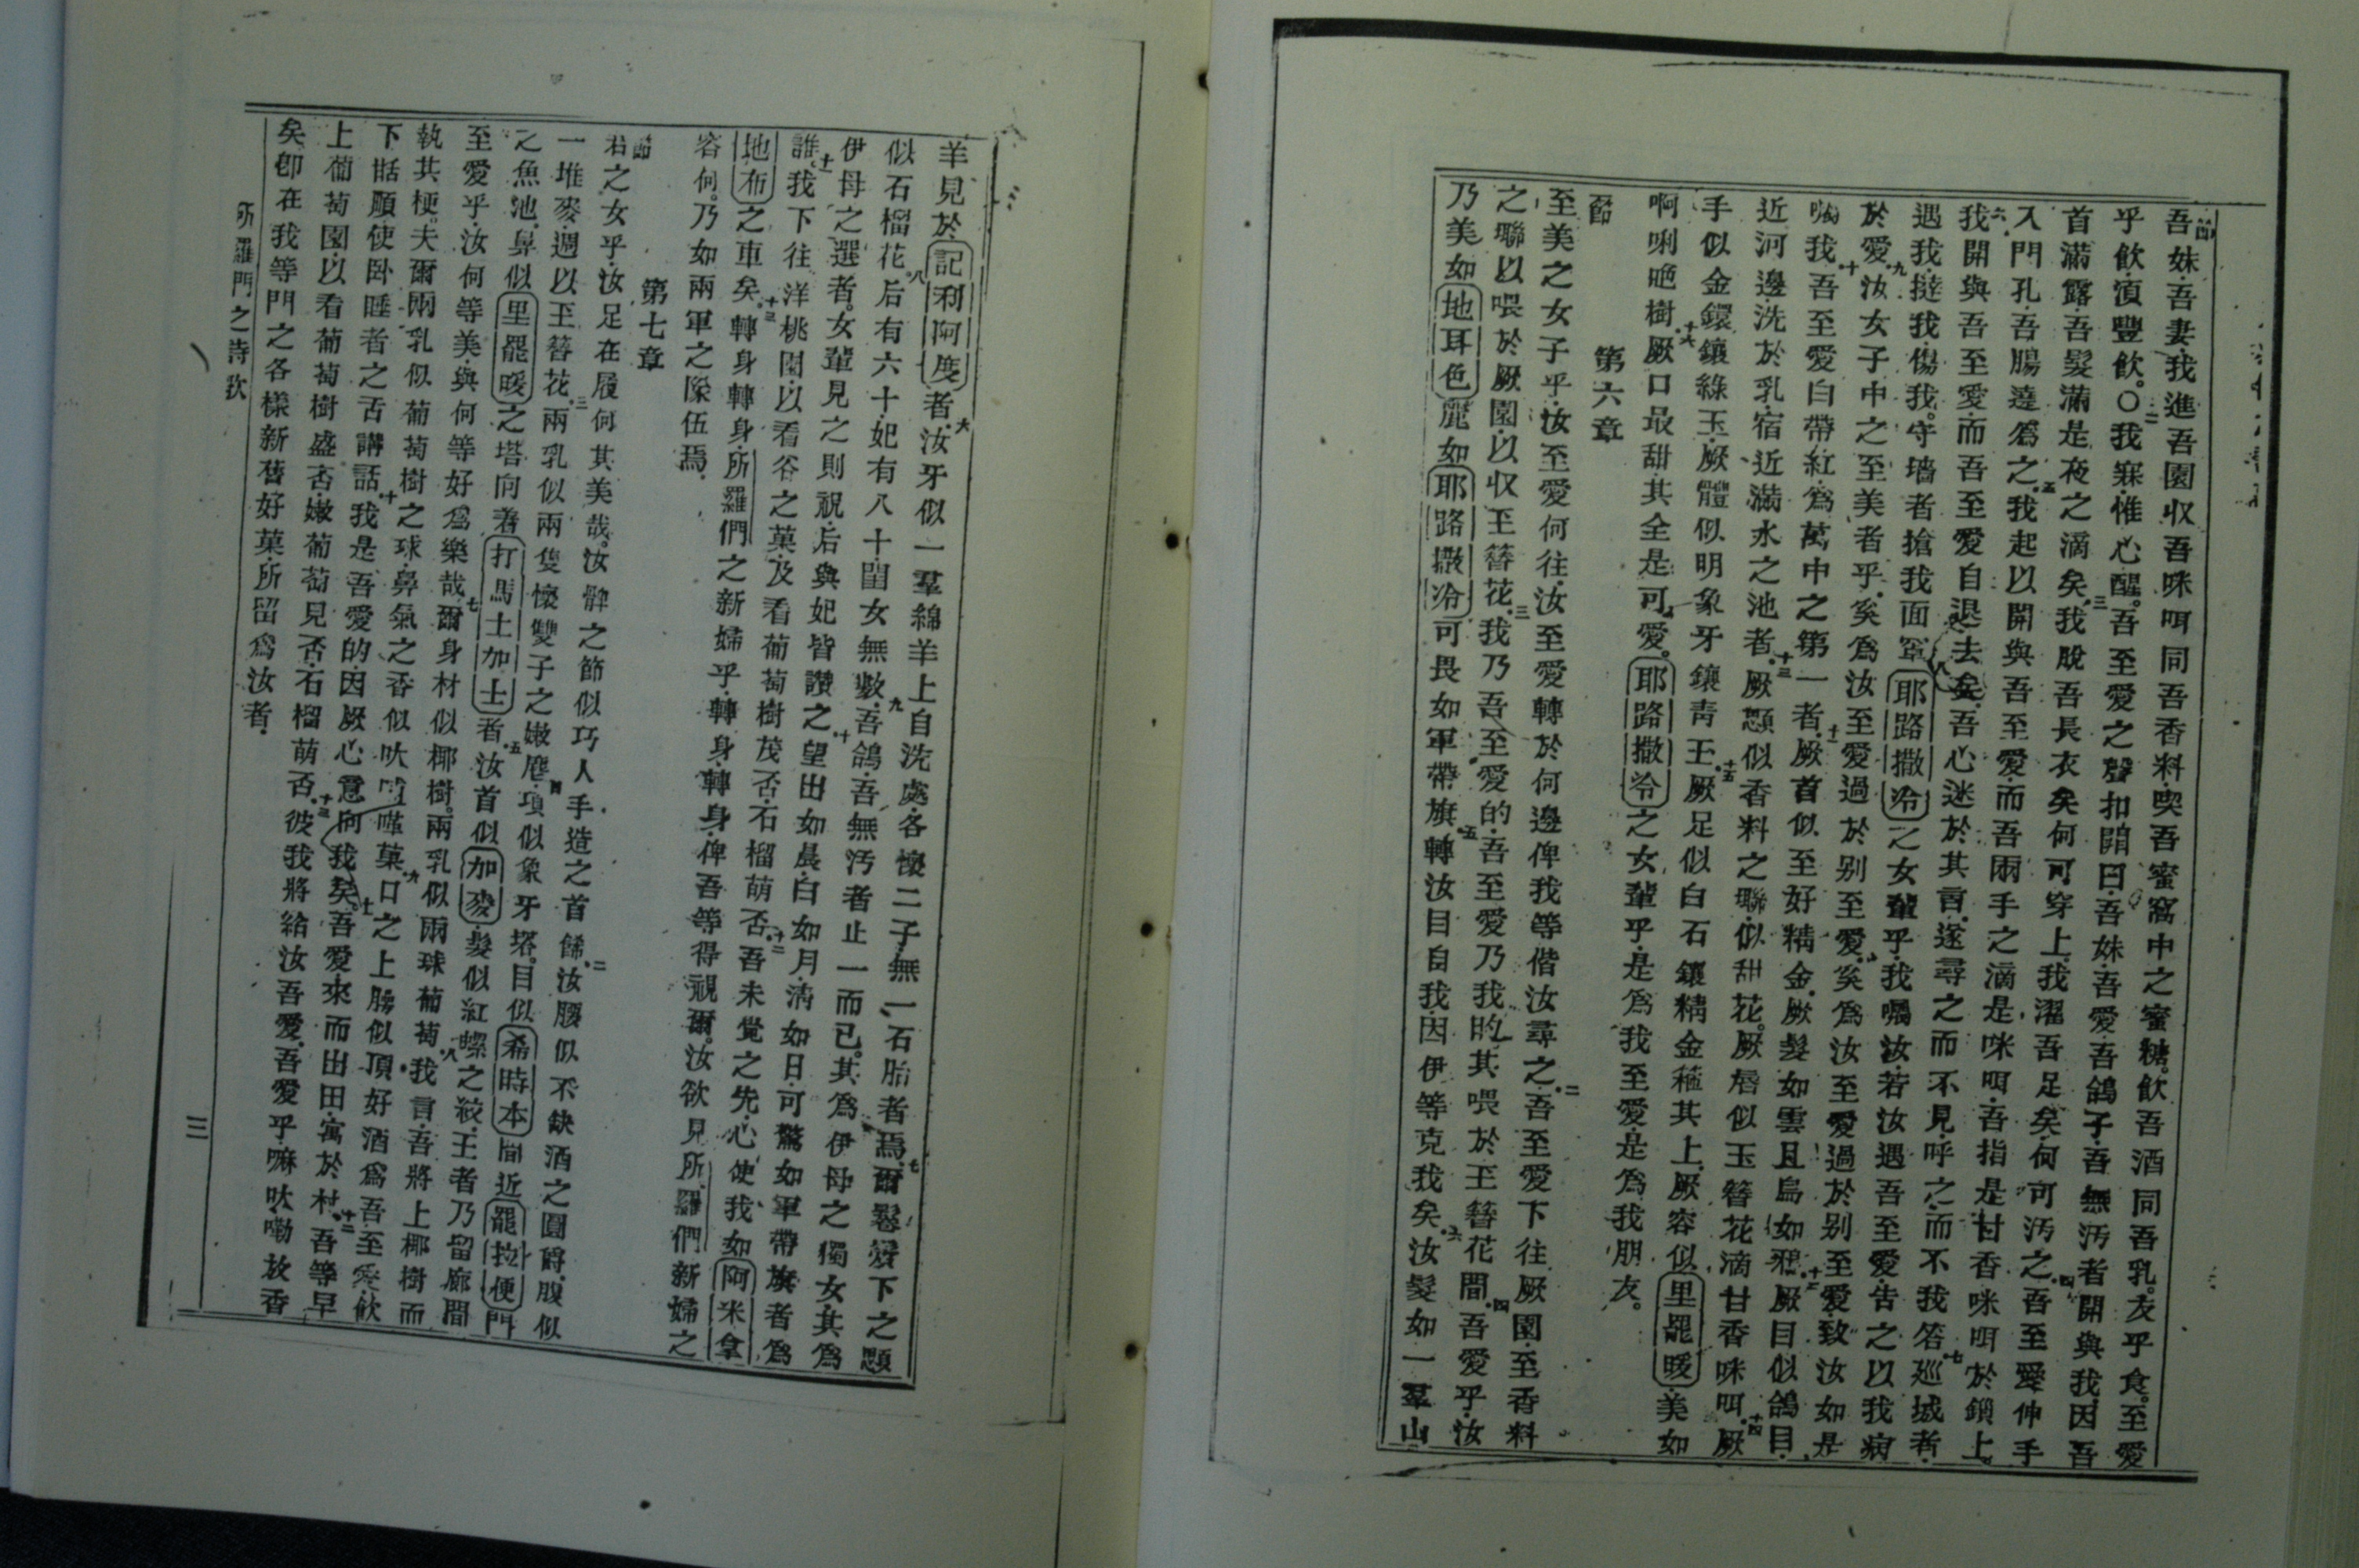 節
吾妹吾妻我進吾園収吾咪咡同吾香料喫吾蜜窩中之蜜糖飲吾酒同吾乳友乎食至愛
乎飲湏豐飲○二我寐惟心醒吾至愛之聲扣門曰吾妹吾愛吾鴿子吾無污者開與我因吾
首滿露吾髮滿是夜之滴矣三我脫吾長衣矣何可穿上我濯吾足矣何可污之四吾至愛伸手
入門孔吾腸遶為之五我起以開與吾至愛而吾兩手之滴是咪咡吾指是甘香咪咡於鎖上
六我開與吾至愛而吾至愛自退去矣吾心迷於其言遂尋之而不見呼之而不我答七於巡城者
遇我撻我傷我守墻者搶我面罩八耶路撒冷之女輩乎我囑汝若汝遇吾至愛告之以我病
於愛九汝女子中之至美者乎奚為汝至愛過於别至愛奚為汝至愛過於别至愛致汝如是
囑我十吾至愛白帶紅為萬中之第一者十一厥首似至好精金厥髮如雲且烏如鴉十二厥目似鴿目
近河邊洗於乳宿近滿水之池者十三厥顋似香料之聯似甜花厥唇似玉簪花滴甘香咪咡十四厥
手似金鐶鑲綠玉厥體似明象牙鑲青玉十五厥足似白石鑲精金𥕛其上厥容似里罷暖美如
啊唎𠵽樹十六厥口最甜其全是可愛耶路撒冷之女輩乎是為我至愛是為我朋友
第六章
節
至美之女子乎汝至愛何往汝至愛轉於何邊俾我等偕汝尋之二吾至愛下往厥園至香料
之聯以喂於厥園以収玉簪花三我乃吾至愛的吾至愛乃我的其喂於玉簪花間四吾愛乎汝
乃美如地耳色麗如耶路撒冷可畏如軍帶旗五轉汝目自我因伊等克我矣六汝髮如一羣山
羊見於記利阿度者六汝牙似一羣綿羊上自洗處各懷二子無一石胎者焉七爾鬈髮下之顋
似石榴花八后有六十妃有八十閨女無數九吾鴿吾無污者止一而已其為伊母之獨女其為
伊母之選者女輩見之則祝后與妃皆讚之十望出如晨白如月清如日可驚如軍帶旗者為
誰十一我下往洋桃園以看谷之菓及看葡萄樹茂否石榴萌否十二吾未覺之先心使我如阿米拿
地布之車矣十三轉身轉身所羅們之新婦乎轉身轉身俾吾等得視爾汝欲見所羅們新婦之
容何乃如兩軍之隊伍焉
第七章
節
君之女乎汝足在履何其美哉汝髀之節似巧人手造之首餙二汝腰似不缺酒之圓爵腹似
一堆麥週以玉簪花三兩乳似兩隻懷雙子之嫩麀四項似象牙塔目似希時本間近罷拉便門
之魚池鼻似里罷暖之塔向着打馬士加士者五汝首似加麥髮似紅螺之紋王者乃留廊間
至愛乎汝何等美與何等好為樂哉七爾身材似椰樹兩乳似兩球葡萄八我言吾將上椰樹而
執其梗夫爾兩乳似葡萄樹之球鼻氣之香似㕭菓九口之上膓似頂好酒為吾至愛飲
下甛順使卧睡者之舌講話十我是吾愛的因厥心意向我矣十一吾愛來而出田寓於村十二吾等早
上葡萄園以看葡萄樹盛否嫩葡萄見否石榴萌否十三彼我將給汝吾愛吾愛乎嘛㕭嘞放香
矣卽在我等門之各樣新舊好菓所留為汝者
所羅門之詩歌
三